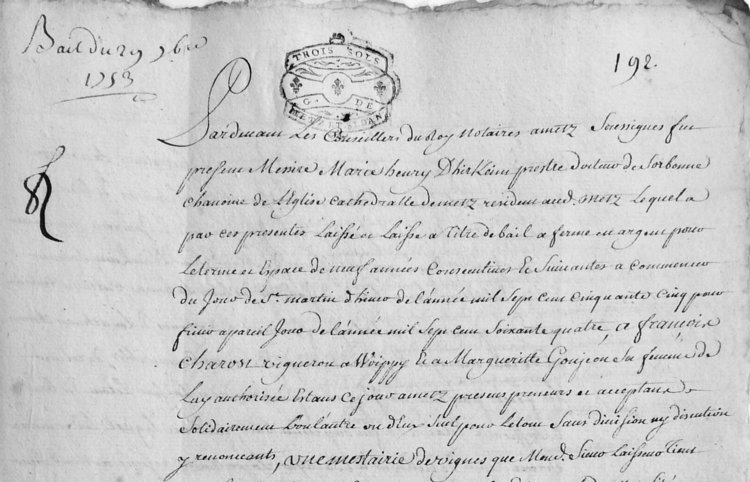 Bail du 29 9bre
1753
TROIS SOLS
G. DE
METZ ET SEDAN
192.
Pardevant Les Conseillers du Roy Notaires a metz Soussignes fut
present Messire Marie henry Dhirkeim prestre docteur de Sorbonne
chanoine de L'Eglise cathedralle de metz resident aud. metz Lequel a
par ces presentes Laissé et Laisse a titre de bail a ferme en argent pour
Le terme et Espace de neuf années Consecutives Et Suivantes a commencer
du Jour de St. martin d'hiver de L'année mil Sept cent cinquante cinq pour
finir a pareil Jour de L'année mil Sept cent Soixante quatre, a françois
charon vigneron a Woippy Et a Margueritte Goujeon Sa femme de
Luy authorisée Estans Ce jour a metz presens preneurs et acceptans
Solidairement L'un L'autre un d'Eux Seul pour Le tout Sans division ny discution
y renonceants, une mestairie de vignes que Mond. Sieur Laisseur tient